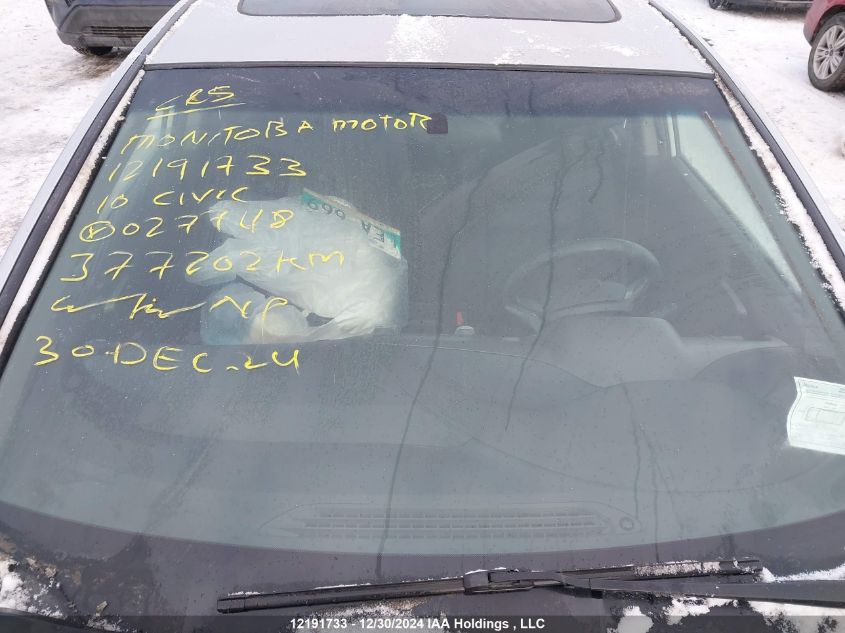 CR5
MONITOBA MOTOR
12191733
10 CIVIC
027748
377202KM
NP
30-DEC-24
LEA 069
12191733 - 12/30/2024 IAA Holdings , LLC